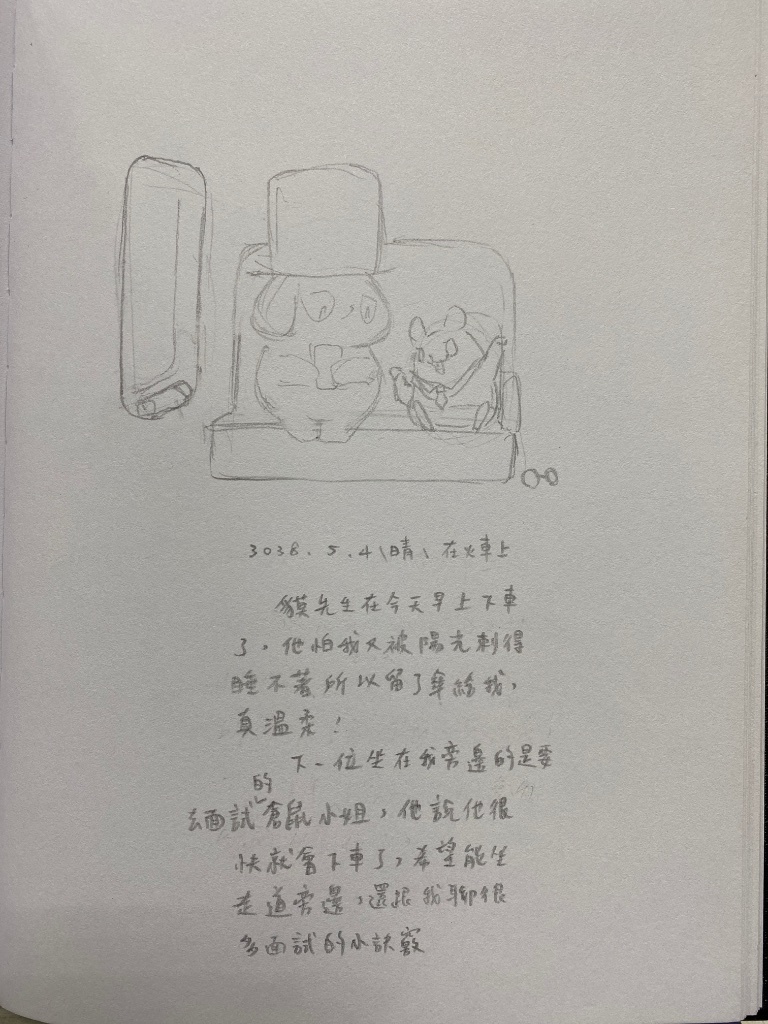 3038.5.4\晴\ 在火車上
貘先生在今天早上下車
了,他怕我又被陽光刺得
睡不著所以留了傘給我,
真溫柔!
下一位坐在我旁邊的是要
去面試的倉鼠小姐,他說他很
快就會下車了,希望能坐
走道旁邊,還跟我聊很
多面試的小訣竅